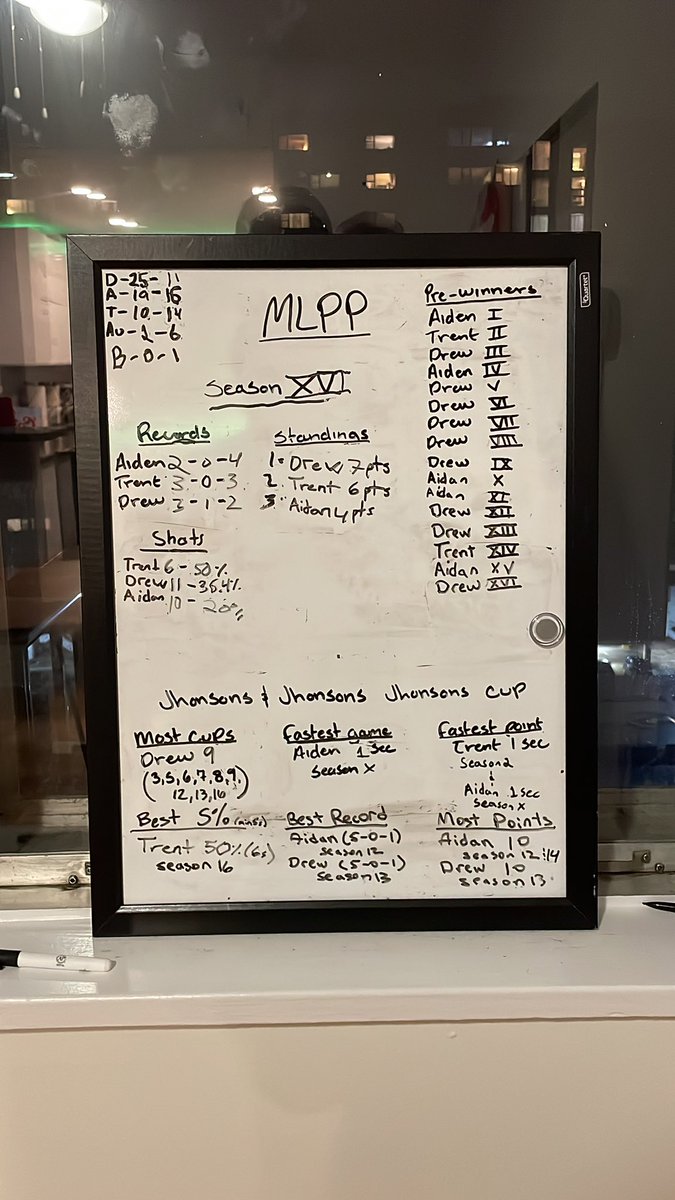 D-25-11
A-19-16
T-10-14
Au-2-6
B-0-1
MLPP
Season XVI
Pre-winners
Aiden I
Trent II
Drew III
Aiden IV
Drew V
Drew VI
Drew VII
Drew VIII
Drew IX
Aidan X
Aidan XI
Drew XII
Drew XIII
Trent XIV
Aidan XV
Drew XVI
Records
Aiden 2-0-4
Trent 3-0-3
Drew 3-1-2
Standings
1. Drew 7pts
2. Trent 6pts
3. Aidan 4pts
Shots
Trent 6-50%
Drew 11-36.4%
Aidan 10-20%
Jhonsons & Jhonsons Jhonsons cup
Most cups
Drew 9
(3,5,6,7,8,9,
12,13,16)
Fastest game
Aiden 1 sec
season X
Fastest point
Trent 1 sec
Season 2
&
Aidan 1sec
season X
Best S%
Trent 50% (6s)
season 16
Best Record
Aidan (5-0-1)
season 12
Drew (5-0-1)
season 13
Most Points
Aidan 10
season 12 14
Drew 10
season 13